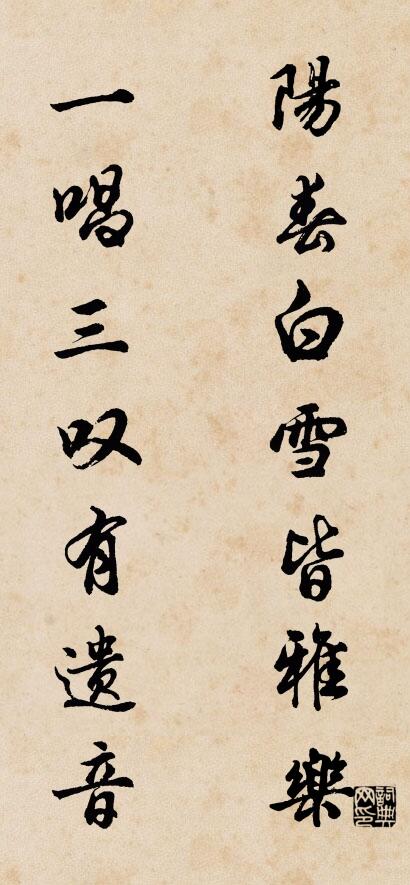 陽春白雪皆雅樂
一唱三叹有遗音
詞典网印